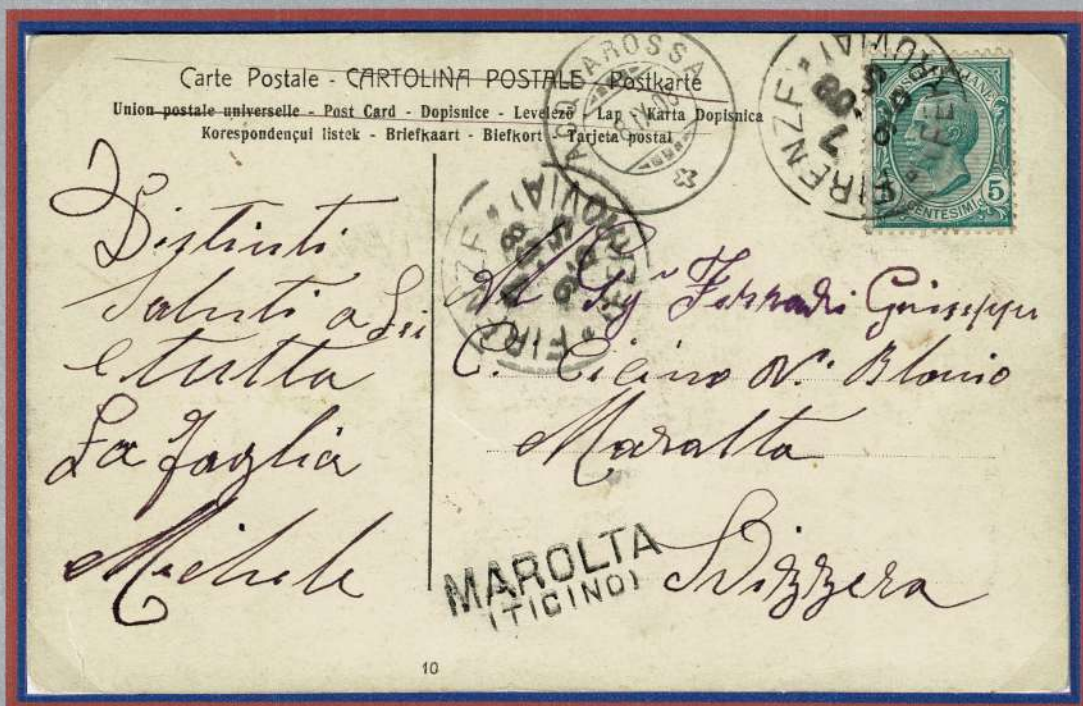 Carte Postale - CARTOLINA POSTALE - Postkarte
Union postale universelle - Post Card - Dopisnice - Levelező - Lap - Karta Dopisnica
Korespondençui listek - Briefkaart - Biefkort - Tarjeta postal
ACQUAROSSA
FIRENZE
(FERROVIA)
7
CENTESIMI 5
FIRENZE
(FERROVIA)
Distinti
Saluti a Lei
e tutta
La Faglia
Michele
Al Sigr Ferrari Guiseppe
C. Ticino V. Blenio
Maralta
Svizzera
MAROLTA
(TICINO)
10